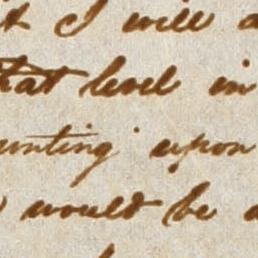 I will
that level in
unting upon
would be